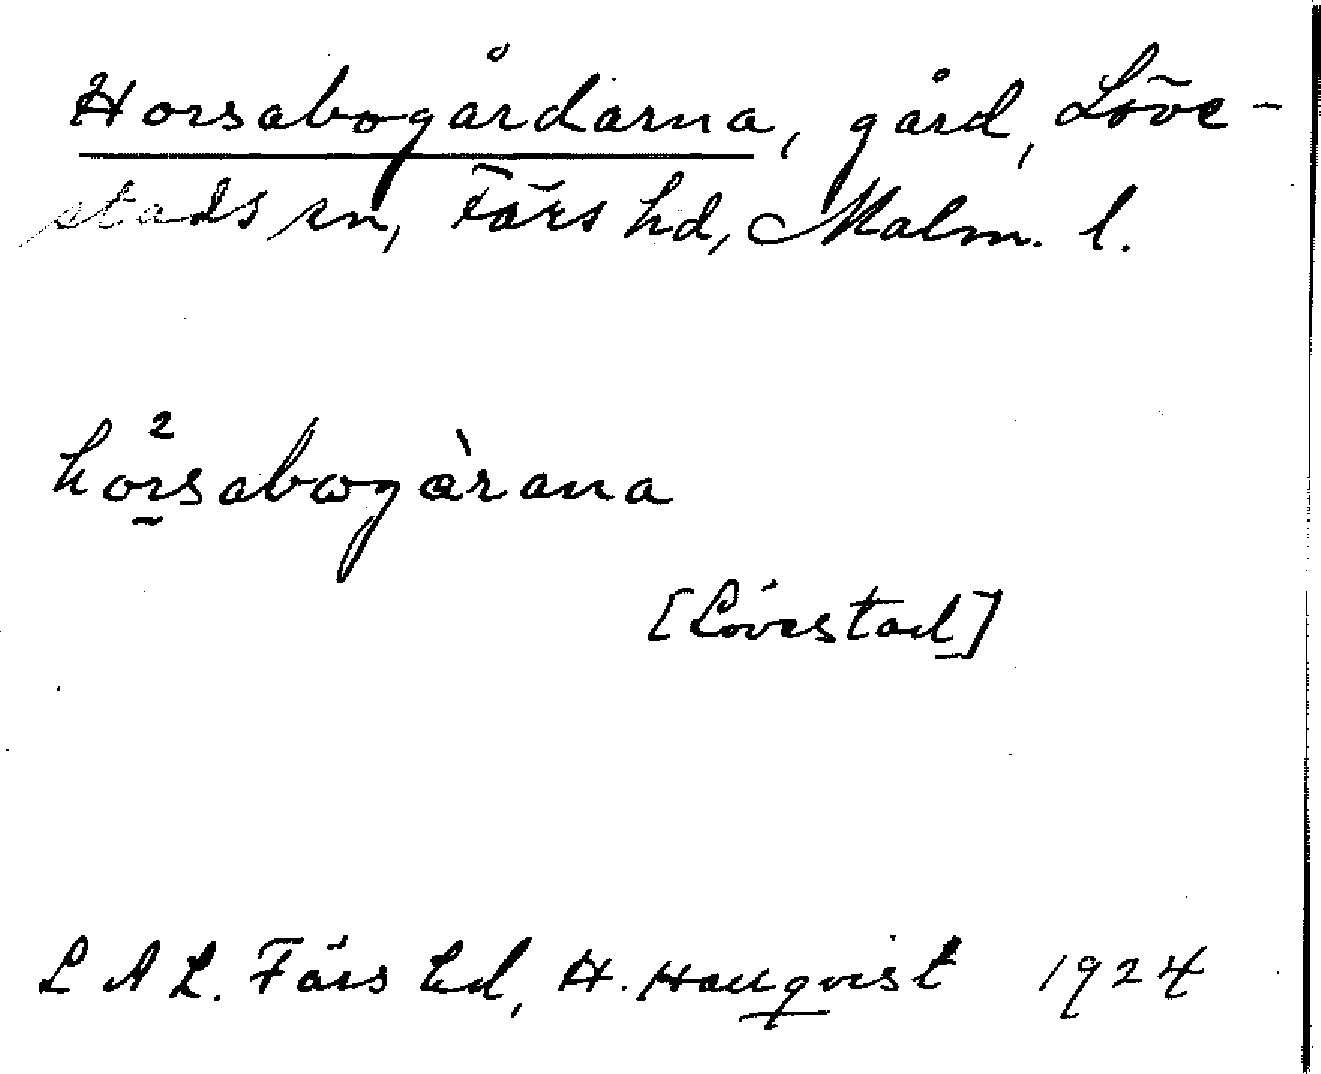 Horsabogårdarna, gård, Löve-
stads sn, Färs hd, Malm. l.
hòrsabogàrana
2
[Lövestad]
L A L. Färs hd, H. Hallqvist 1924